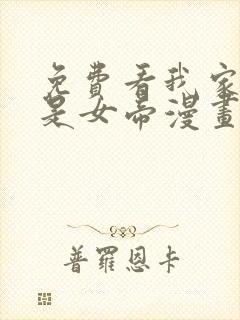 免費看我家
是女帝漫畫
普羅恩卡